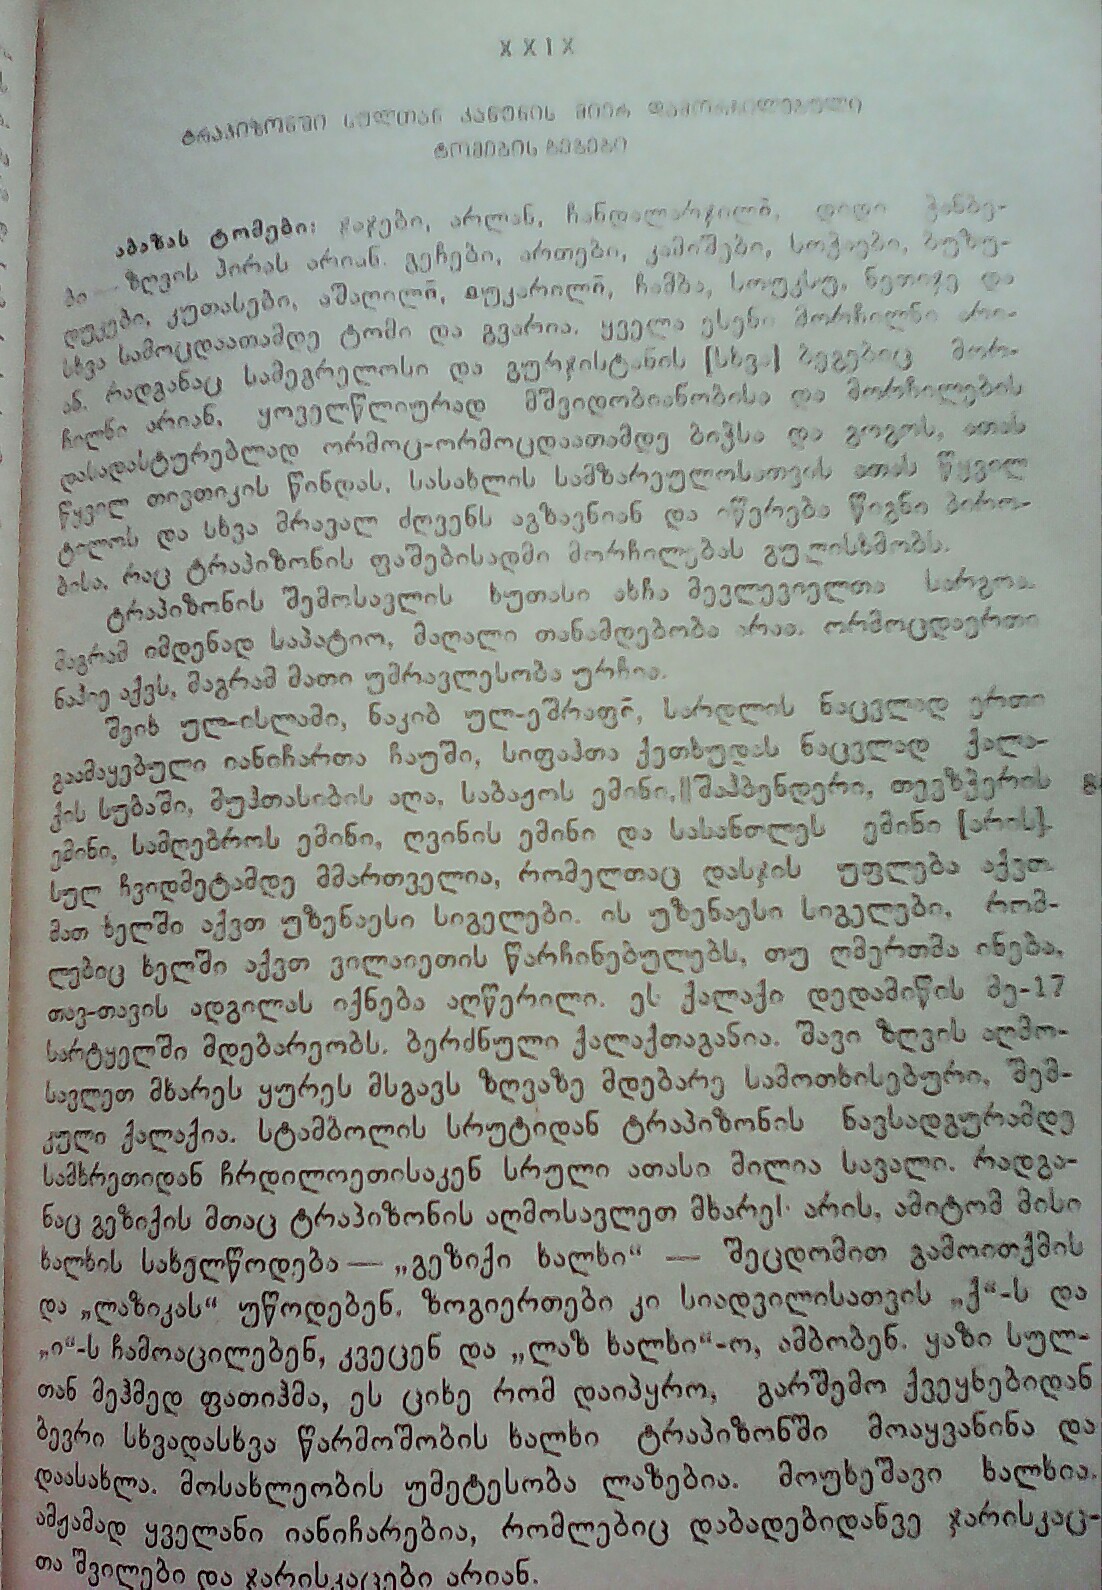 XXIX
ტრაპიზონში სულთან კანუნის მიერ დამორჩილებული
ტომების ბეგები
აბაზას ტომები: ჯაჯები, არლან, ჩანდალარჯილნ, დიდი ჭანბე-
ბი — ზღვის პირას არიან. გეჩები, ართები, კამიშები, სოჭაები, ბუზუ-
დუკები, კუთასები, აშაღილნ, მუკარილნ, ჩამბა, სოუკსუ, ნეთიჯე და
სხვა სამოცდაათამდე ტომი და გვარია. ყველა ესენი მორჩილნი არი-
ან. რადგანაც სამეგრელოსი და გურჯისტანის [სხვა] ბეგებიც მორ-
ჩილნი არიან, ყოველწლიურად მშვიდობიანობისა და მორჩილების
დასადასტურებლად ორმოც-ორმოცდაათამდე ბიჭსა და გოგოს, ათას
წყვილ თივთიკის წინდას, სასახლის სამზარეულოსათვის ათას წყვილ
ტილოს და სხვა მრავალ ძღვენს აგზავნიან და იწერება წიგნი პირო-
ბისა, რაც ტრაპიზონის ფაშებისადმი მორჩილებას გულისხმობს.
ტრაპიზონის შემოსავლის ხუთასი ახჩა მევლევიელთა სარგოა.
მაგრამ იმდენად საპატიო, მაღალი თანამდებობა არაა. ორმოცდაერთი
ნაჰიე აქვს, მაგრამ მათი უმრავლესობა ურჩია.
შეიხ ულ-ისლამი, ნაკიბ ულ-ეშრაფი, სარდლის ნაცვლად ერთი
გაამაყებული იანიჩართა ჩაუში, სიფაჰთა ქეთხუდას ნაცვლად ქალა-
ქის სუბაში, მუჰთასიბის აღა, საბაჟოს ემინი,||შაჰბენდერი, თევზჭერის
ემინი, სამღებროს ემინი, ღვინის ემინი და სასანთლეს ემინი [არის].
სულ ჩვიდმეტამდე მმართველია, რომელთაც დასჯის უფლება აქვთ.
მათ ხელში აქვთ უზენაესი სიგელები. ის უზენაესი სიგელები, რომ-
ლებიც ხელში აქვთ ვილაიეთის წარჩინებულებს, თუ ღმერთმა ინება,
თავ-თავის ადგილას იქნება აღწერილი. ეს ქალაქი დედამიწის მე-17
სარტყელში მდებარეობს. ბერძნული ქალაქთაგანია. შავი ზღვის აღმო-
სავლეთ მხარეს ყურეს მსგავს ზღვაზე მდებარე სამოთხისებური, შემ-
კული ქალაქია. სტამბოლის სრუტიდან ტრაპიზონის ნავსადგურამდე
სამხრეთიდან ჩრდილოეთისაკენ სრული ათასი მილია სავალი. რადგა-
ნაც გეზიქის მთაც ტრაპიზონის აღმოსავლეთ მხარეს არის, ამიტომ მისი
ხალხის სახელწოდება — „გეზიქი ხალხი“ — შეცდომით გამოითქმის
და „ლაზიკას“ უწოდებენ. ზოგიერთები კი სიადვილისათვის „ქ“-ს და
„ი“-ს ჩამოაცილებენ, კვეცენ და „ლაზ ხალხი“-ო, ამბობენ. ყაზი სულ-
თან მეჰმედ ფათიჰმა, ეს ციხე რომ დაიპყრო, გარშემო ქვეყნებიდან
ბევრი სხვადასხვა წარმოშობის ხალხი ტრაპიზონში მოაყვანინა და
დაასახლა. მოსახლეობის უმეტესობა ლაზებია. მოუხეშავი ხალხია.
ამჟამად ყველანი იანიჩარებია, რომლებიც დაბადებიდანვე ჯარისკაც-
თა შვილები და ჯარისკაცები არიან.